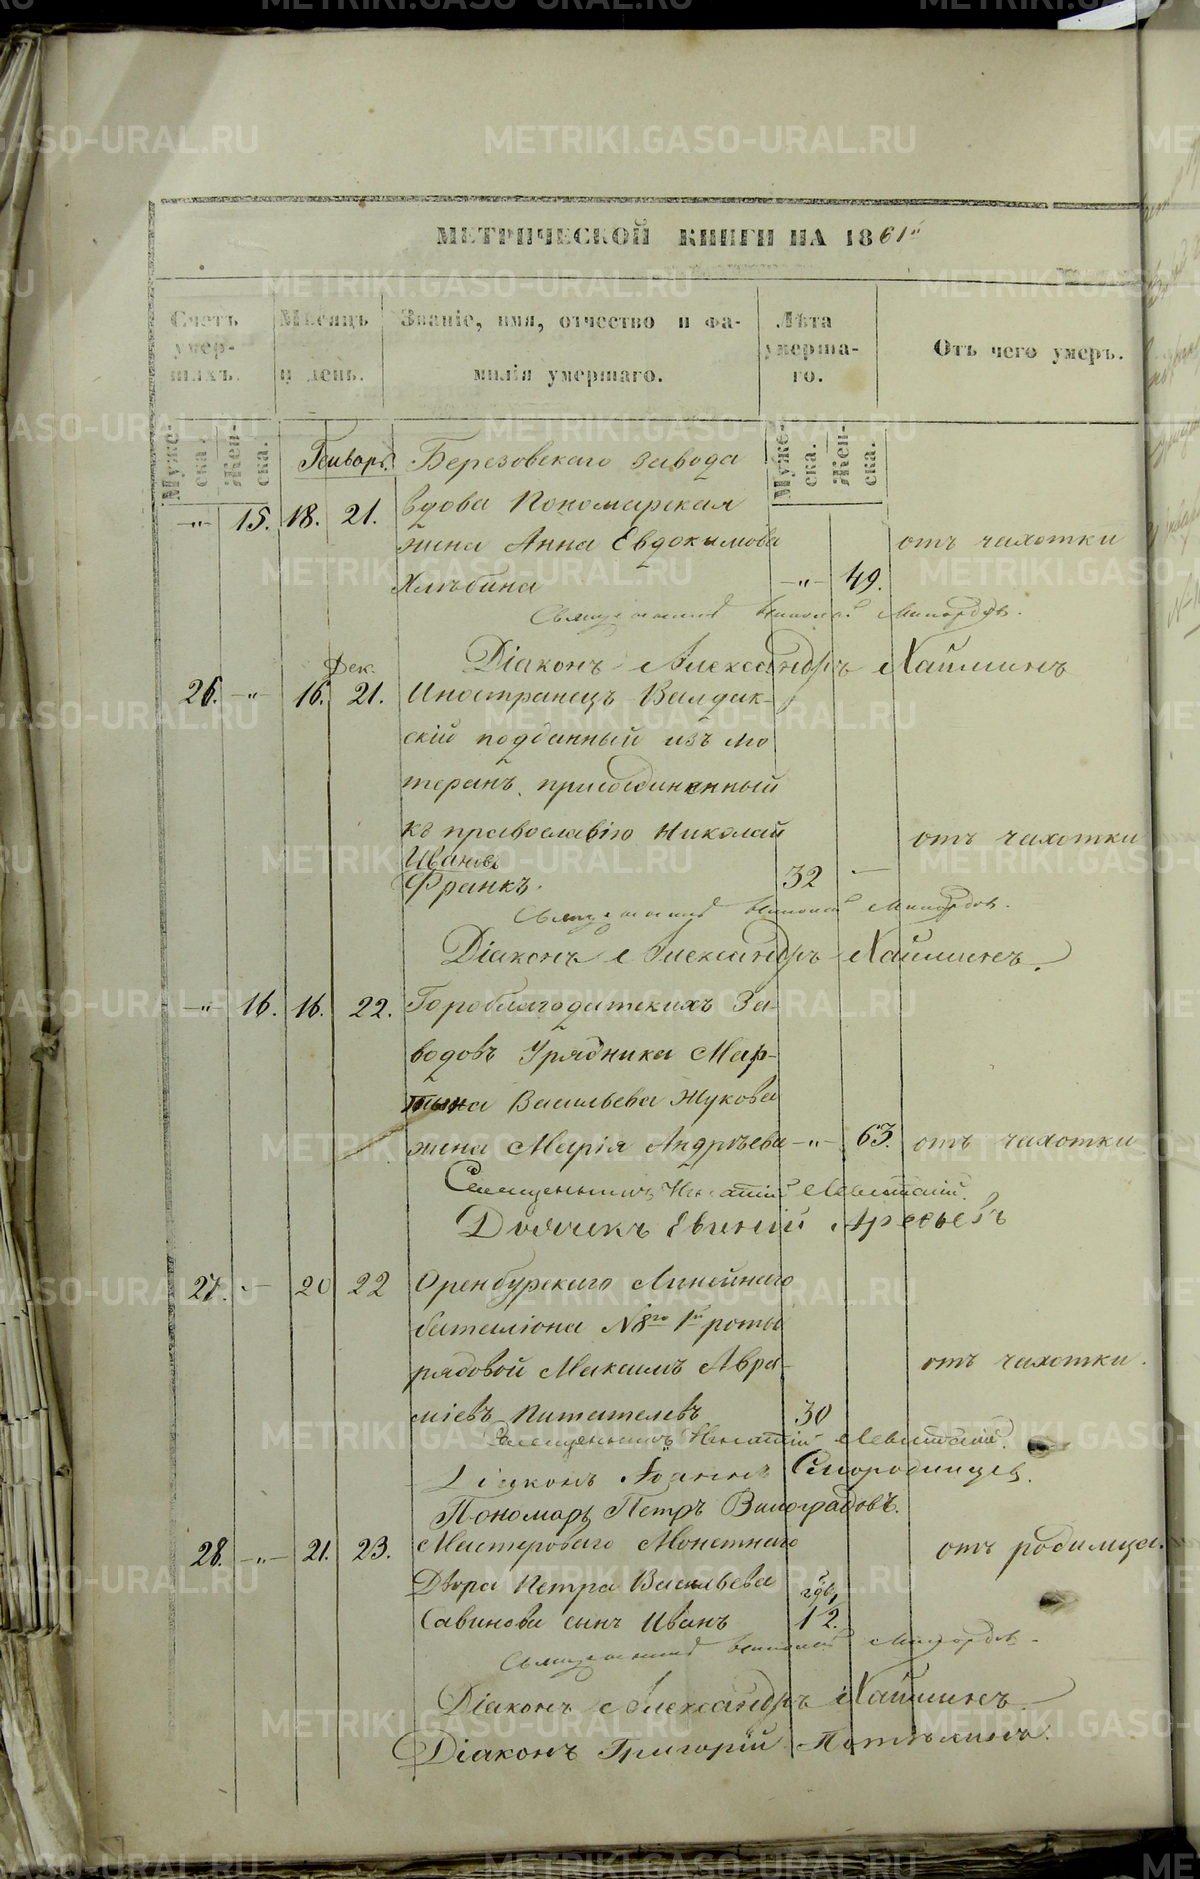 МЕТРИЧЕСКОЙ КНИГИ НА 1861й
Счетъ умер-шихъ.
Мѣсяцъ и день.
Званіе, имя, отчество и фа-
милія умершаго.
Лѣта умерша-го.
Отъ чего умеръ.
Муже-ска.
Жен-ска.
Муже-ска.
Жен-ска.
Генварь.
Березовскаго завода
-"- 15. 18. 21. вдова Пономарская
жена Анна Евдокимова отъ чахотки
Хлѣбина -"- 49.
Священникъ Николай
Діаконъ Александръ Хаминъ
Дек.
26. -"- 16. 21. Иностранецъ Валдак-
скій подданный изъ лю
теранъ, присоединенный
къ православію Николай отъ чахотки
Ивановъ
Франкъ. 32 —
Священникъ Николай
Діаконъ Александръ Хаминъ.
-"- 16. 16. 22. Гороблагодатскихъ За-
водовъ Урядника Мар-
тына Васильева Жукова
жена Марія Андрѣева -"- 63. отъ чахотки
Священникъ Игнатій Левитскій.
Дьячекъ Евгеній Арефьевъ
27. — 20 22 Оренбургскаго Линейнаго
баталіона №8го 1й роты
рядовой Максимъ Авра- отъ чахотки.
міевъ Питателевъ 30
Священникъ Игнатій Левитскій.
Діаконъ Іоаннъ Смородинцев.
Пономарь Петръ Виноградовъ.
28. -"- 21. 23. Мастероваго Монетнаго отъ родимца.
Двора Петра Васильева
Савинова сынъ Иванъ 12.
Священникъ Николай
Діаконъ Александръ Хаминъ
Діаконъ Григорій
METRIKI.GASO-URAL.RU